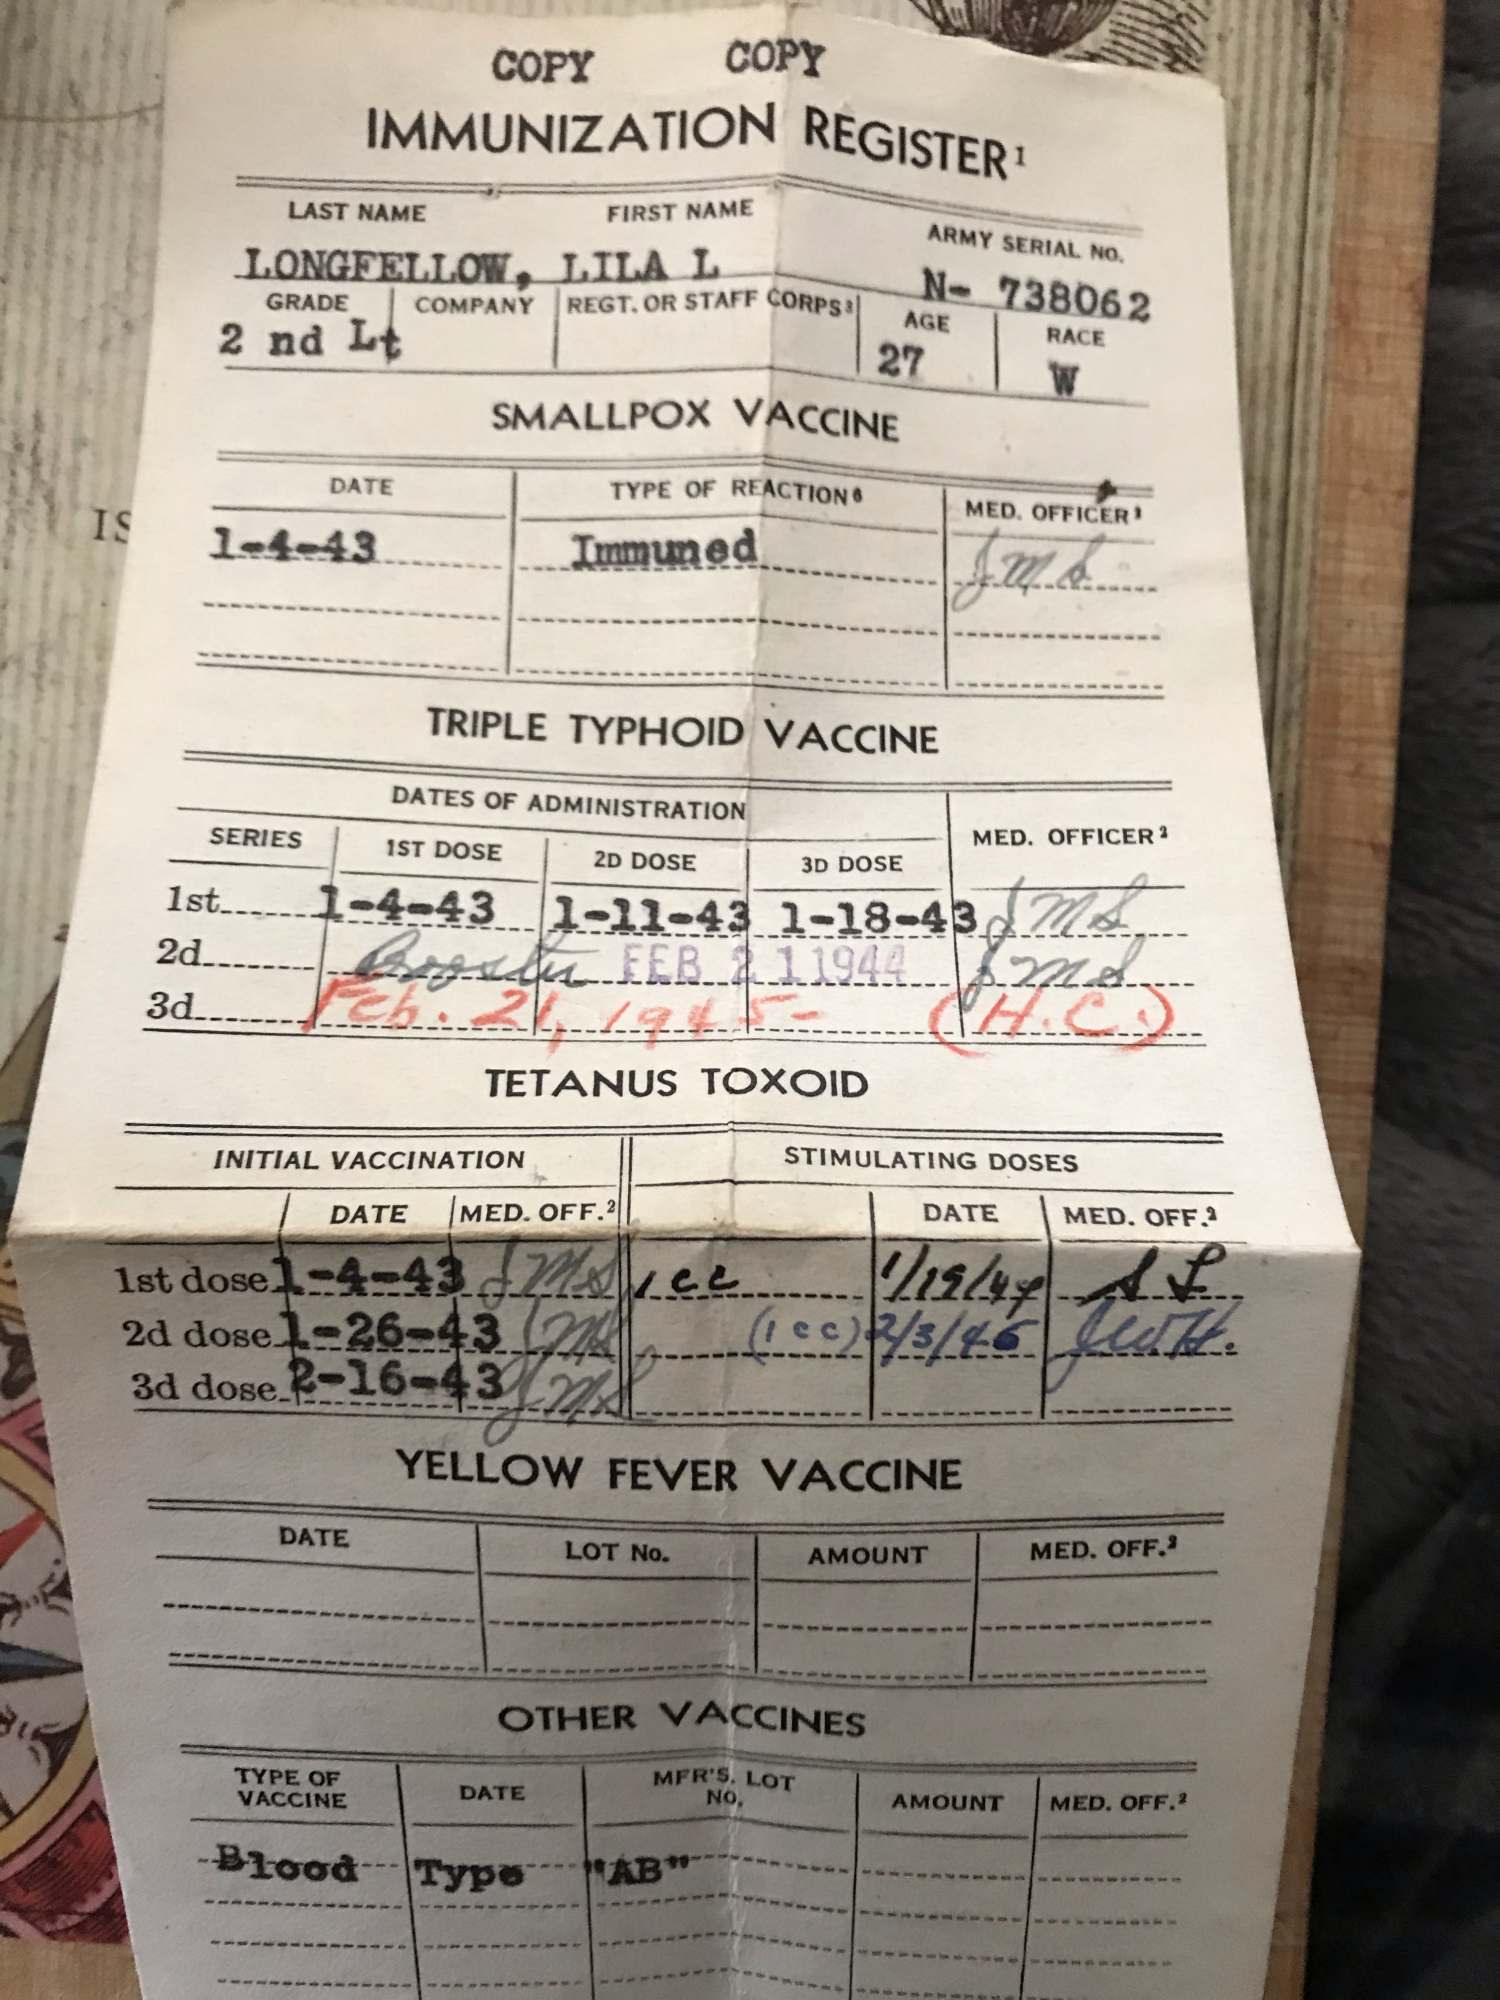 COPY COPY
IMMUNIZATION REGISTER¹
LAST NAME FIRST NAME ARMY SERIAL NO.
LONGFELLOW, LILA L N- 738062
GRADE COMPANY REGT. OR STAFF CORPS³ AGE RACE
2 nd Lt 27 W
SMALLPOX VACCINE
DATE TYPE OF REACTION⁶ MED. OFFICER³
1-4-43 Immuned JMS
TRIPLE TYPHOID VACCINE
DATES OF ADMINISTRATION
SERIES 1ST DOSE 2D DOSE 3D DOSE MED. OFFICER²
1st 1-4-43 1-11-43 1-18-43 JMS
2d Booster FEB 21 1944 JMS
3d Feb. 21, 1945- (H.C.)
TETANUS TOXOID
INITIAL VACCINATION STIMULATING DOSES
DATE MED. OFF.² DATE MED. OFF.²
1st dose 1-4-43 JMS 1 cc 1/19/44 S L
2d dose 1-26-43 JMS (1 cc) 2/3/45 JWH.
3d dose 2-16-43 JMS
YELLOW FEVER VACCINE
DATE LOT No. AMOUNT MED. OFF.²
OTHER VACCINES
TYPE OF VACCINE DATE MFR'S. LOT NO. AMOUNT MED. OFF.²
Blood Type "AB"